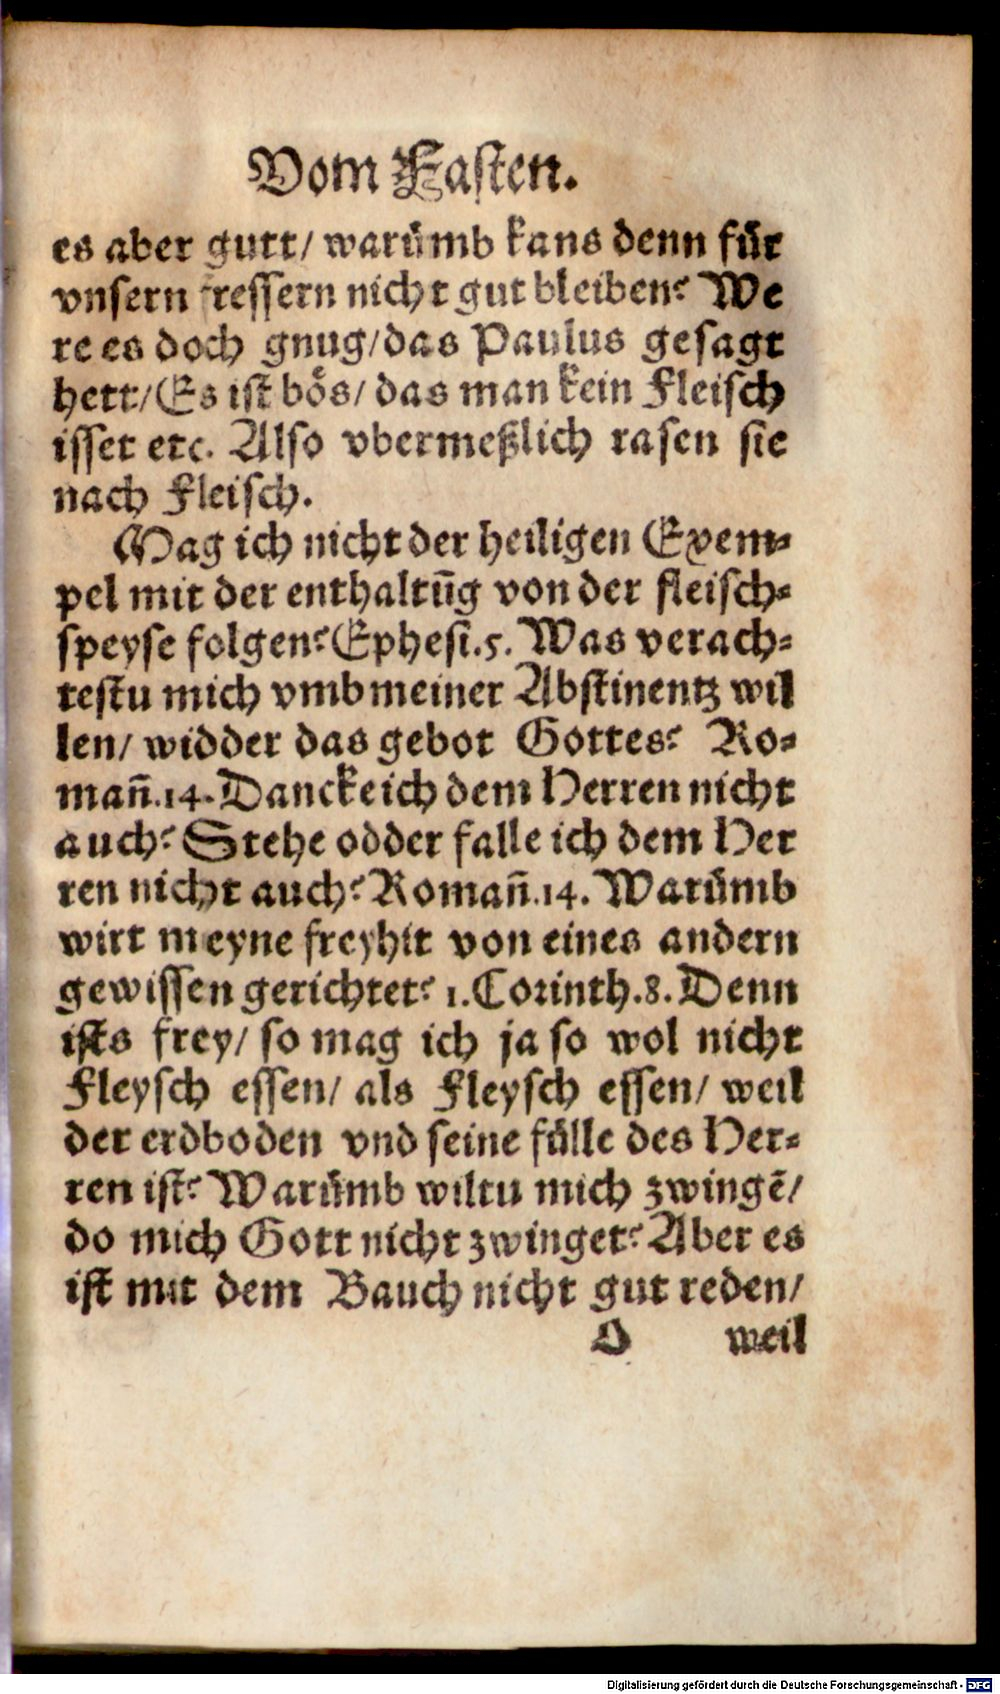 Vom Fasten.
es aber gutt/ warůmb kans denn für
vnsern fressern nicht gut bleiben? We
re es doch gnug/das Paulus gesagt
hett/Es ist bös/ das man kein Fleisch
isset etc. Also vbermeßlich rasen sie
nach Fleisch.
Mag ich nicht der heiligen Exem-
pel mit der enthaltūg von der fleisch-
speyse folgen? Ephesi.5. Was verach-
testu mich vmb meiner Abstinentz wil
len/ widder das gebot Gottes? Ro-
mañ.14. Dancke ich dem Herren nicht
auch? Stehe odder falle ich dem Her
ren nicht auch? Romañ.14. Warůmb
wirt meyne freyhit von eines andern
gewissen gerichtet? 1.Corinth.8. Denn
ists frey/ so mag ich ja so wol nicht
Fleysch essen/ als Fleysch essen/ weil
der erdboden vnd seine fülle des Her-
ren ist? Warůmb wiltu mich zwingē/
do mich Gott nicht zwinget? Aber es
ist mit dem Bauch nicht gut reden/
O weil
Digitalisierung gefördert durch die Deutsche Forschungsgemeinschaft - DFG